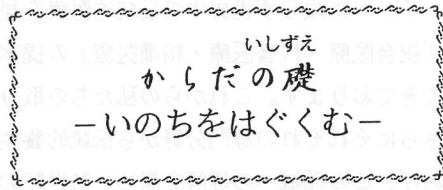 いしずえ
からだの礎
－いのちをはぐくむ－